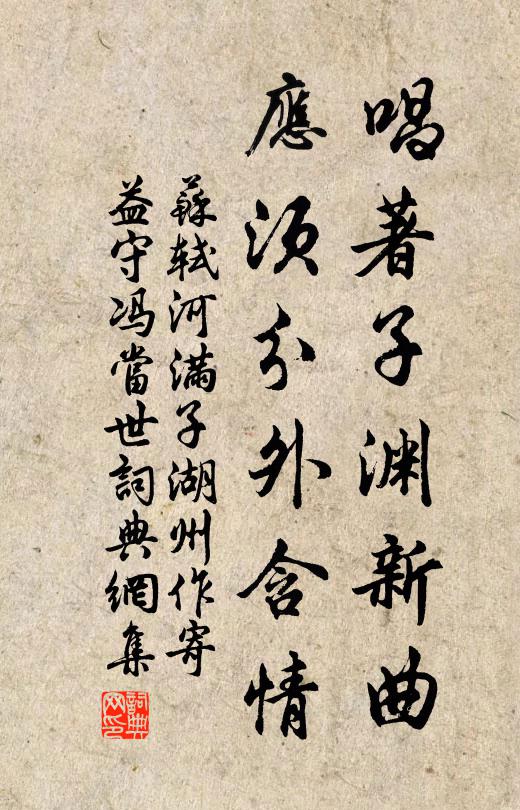 唱著子渊新曲
應須分外含情
蘇軾河滿子湖州作寄
益守冯當世詞典網集
詞典网印